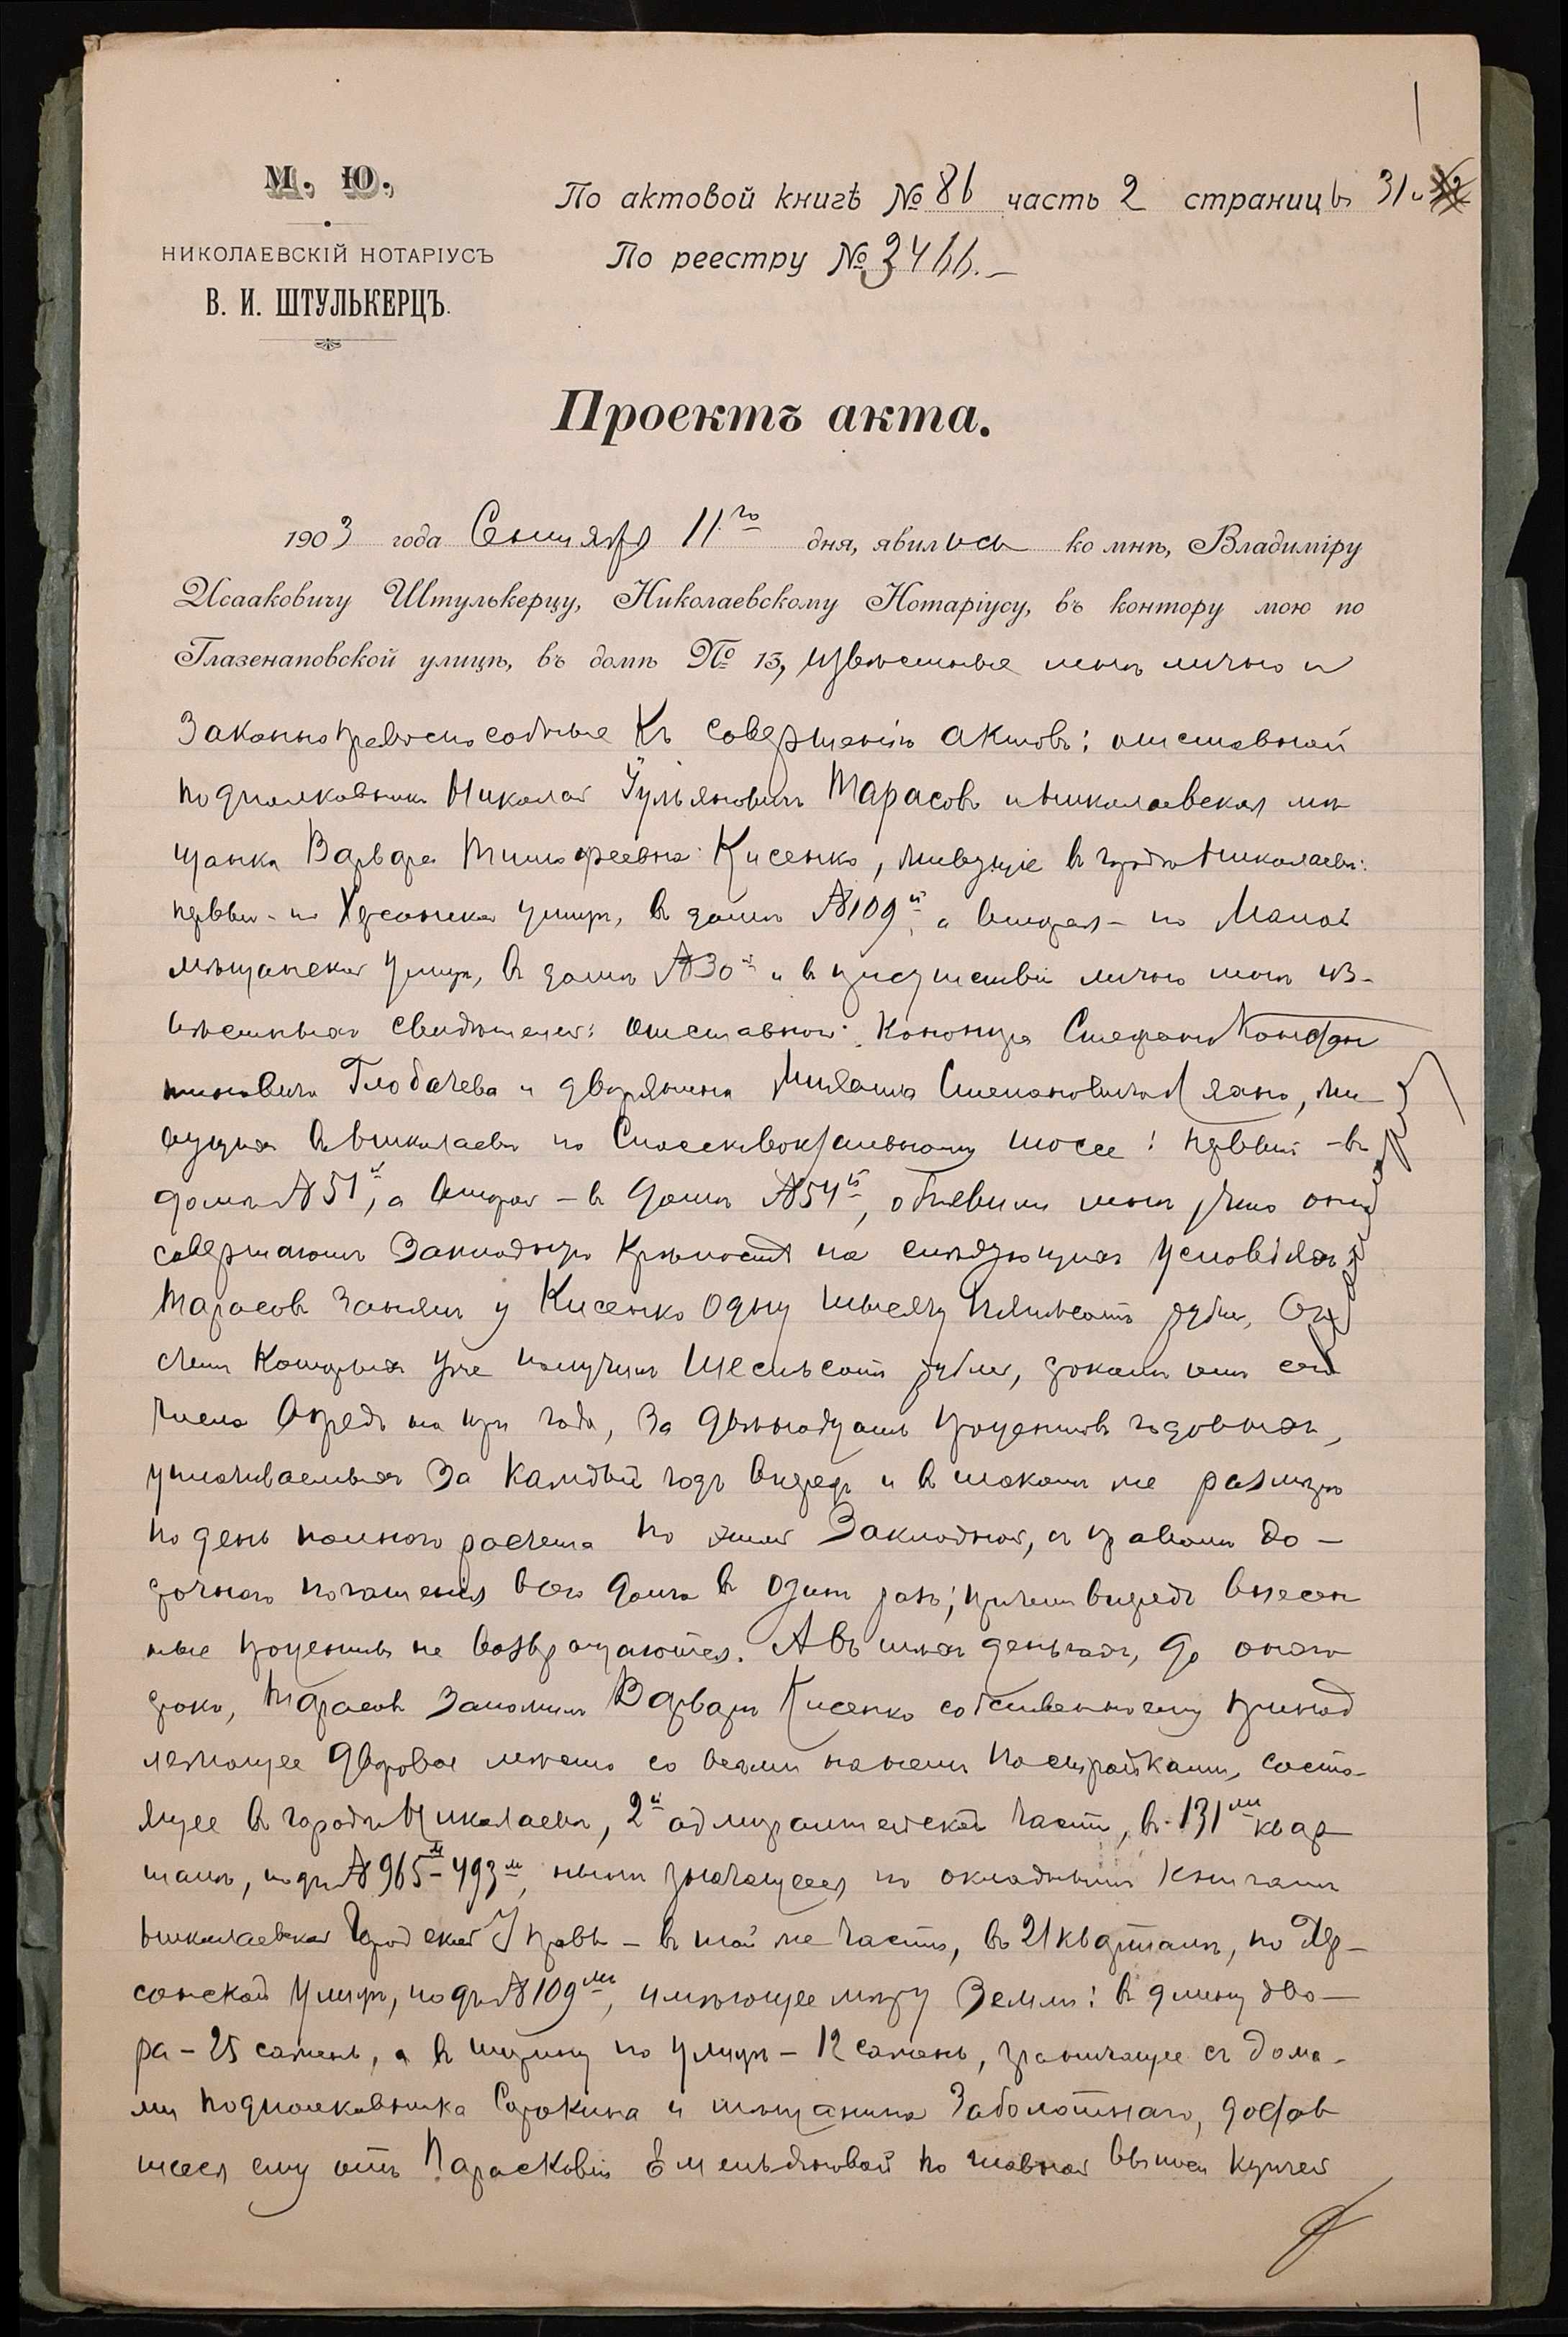 М. Ю.
НИКОЛАЕВСКІЙ НОТАРІУСЪ
В. И. ШТУЛЬКЕРЦЪ.
По актовой книгѣ № 86 часть 2 страницѣ 31
По реестру № 3466.
Проектъ акта.
1903 года Сентября 11го дня, явились ко мнѣ, Владиміру
Исааковичу Штулькерцу, Николаевскому Нотаріусу, въ контору мою по
Глазенаповской улицѣ, въ домѣ № 13, извѣстные мнѣ лично и
законноправоспособные къ совершенію актовъ: отставной
подполковникъ Николай Іульяновичъ Тарасовъ и николаевская мѣ
щанка Варвара Тимофеевна Кисенко, живущіе въ городѣ Николаевѣ:
первый - по Херсонской улицѣ, въ домѣ № 109й, а вторая - по Малой
мѣщанской улицѣ, въ домѣ № 30й и въ присутствіи лично мнѣ из-
вѣстныхъ свидѣтелей: отставного Стефана Констан
тиновича Глобачева и дворянина Степановича жи-
вущихъ въ Николаевѣ по шоссе: первый - въ
домѣ № 51й, а второй - въ домѣ № 54й, объявили мнѣ, что они
совершаютъ закладную крѣпость на слѣдующихъ условіяхъ:
Тарасовъ занялъ у Кисенко одну тысячу пятьсотъ рублей, въ
счетъ которыхъ уже получилъ шестьсотъ рублей, срокомъ отъ сего
числа впредь на три года, за двѣнадцать процентовъ годовыхъ,
уплачиваемыхъ за каждый годъ впередъ и въ такомъ же размѣрѣ
по день полного расчета по этой закладной, съ правомъ до-
срочнаго погашенія всего долга въ одинъ разъ; причемъ впередъ внесен
ные проценты не возвращаются. А въ тѣхъ деньгахъ, до оного
срока, Тарасовъ заложилъ Варварѣ Кисенко собственно ему принад
лежащее дворовое мѣсто со всѣми на немъ постройками, состо-
ящее въ городѣ Николаевѣ, 2й адмиралтейской части, въ 131мъ квар
талѣ, подъ № 965м-493м, нынѣ значащееся по окладнымъ книгамъ
Николаевской Городской Управы - въ той же части, въ 21 кварталѣ, по Хер-
сонской улицѣ, подъ № 109мъ, имѣющее мѣру земли: въ длину дво-
ра - 25 саженъ, а въ ширину по улицѣ - 12 саженъ, граничащее съ дома-
ми подполковника Сорокина и мѣщанина Заболотнаго, достав
шееся ему отъ Парасковіи Емельяновой по главной выписи купчей